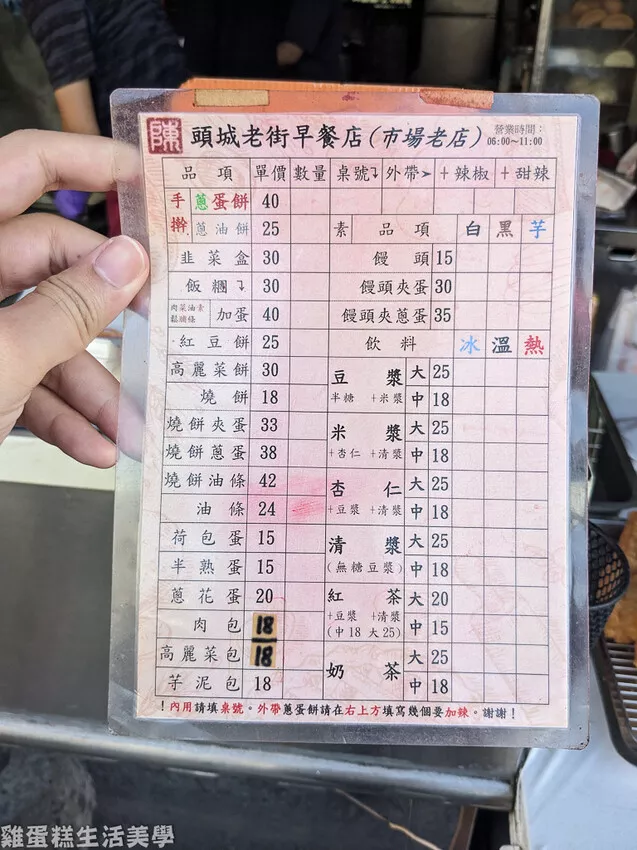 陳 頭城老街早餐店(市場老店) 營業時間：
06:00~11:00
品項 單價 數量 桌號↴ 外帶➤ +辣椒 +甜辣
手擀 蔥蛋餅 40
蔥油餅 25
韭菜盒 30
飯糰↴ 30
肉鬆 菜脯 油條 素 加蛋 40
紅豆餅 25
高麗菜餅 30
燒餅 18
燒餅夾蛋 33
燒餅蔥蛋 38
燒餅油條 42
油條 24
荷包蛋 15
半熟蛋 15
蔥花蛋 20
肉包 18
高麗菜包 18
芋泥包 18
素 品項 白 黑 芋
饅頭 15
饅頭夾蛋 30
饅頭夾蔥蛋 35
飲料 冰 溫 熱
豆漿 大 25
半糖 +米漿 中 18
米漿 大 25
+杏仁 +清漿 中 18
杏仁 大 25
+豆漿 +清漿 中 18
清漿 大 25
(無糖豆漿) 中 18
紅茶 大 20
+豆漿 +清漿
(中18 大25) 中 15
奶茶 大 25
中 18
！內用請填桌號。外帶蔥蛋餅請在右上方填寫幾個要加辣。謝謝！
雞蛋糕生活美學